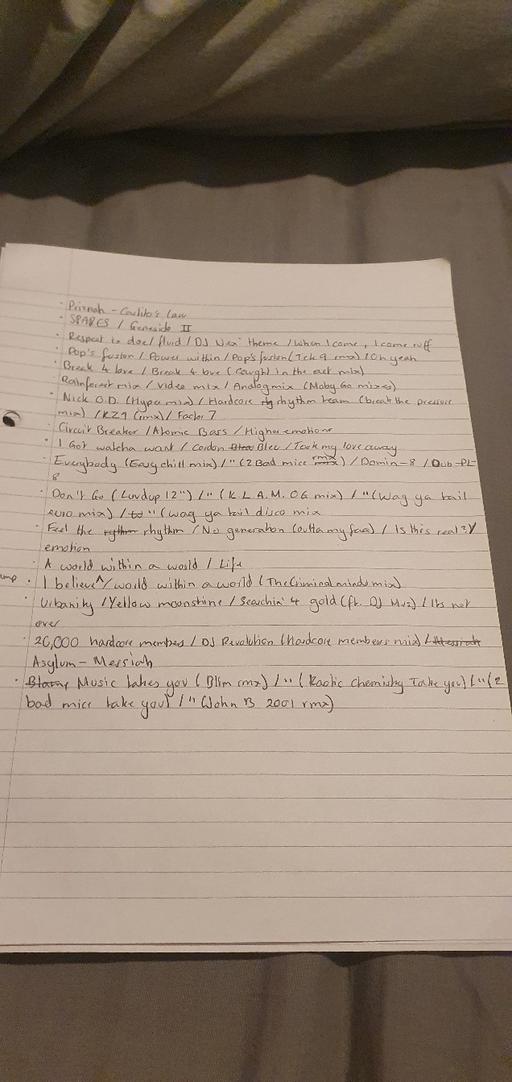 · Prisnah - Carlito's Law
· SPARES / Genaside II
· Respect is due / fluid / DJ Nex' theme / When I come, I come ruff
· Pop's fusion / Power within / Pop's fusion (Tek 9 rmx) / Oh yeah
· Break 4 love / Break 4 love (Caught in the act mix)
Rainforest mix / Video mix / Analog mix (Moby Go mixes)
· Nick O.D. (Hype mix) / Hardcore rhythm team (break the pressure
mix) / KZ1 (rmx) / Factor 7
· Circuit Breaker / Atomic Bass / Higher emotions
· I Got watcha want / Cordon Bleu / Took my love away
· Everybody (Easy chill mix) / " (2 Bad mice rmx) / Domin-8 / Dub-PL-
8
· Don't Go (Luvdup 12") / " (K.L.A.M. OG mix) / " (Wag ya tail
euro mix) / " (wag ya tail disco mix
· Feel the rhythm / No generation (outta my face) / Is this real? /
emotion
· A world within a world / Life
ump · I believe / world within a world (The Criminal minds mix)
· Urbanity / Yellow moonshine / Searchin' 4 gold (ft. DJ Muz) / Its not
over
· 20,000 hardcore members / DJ Revolution (Hardcore members mix) / Messiah
Asylum - Messiah
· Music takes you (Blim rmx) / " (Kaotic Chemistry Take you) / " (2
bad mice take you) / " (John B 2001 rmx)